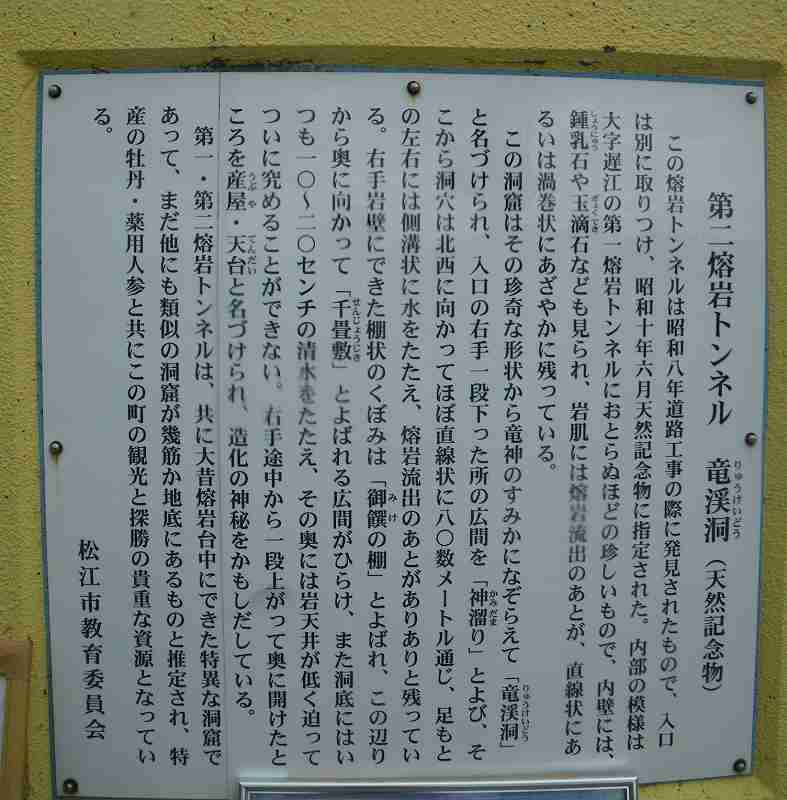 第二熔岩トンネル　竜渓洞（天然記念物）
この熔岩トンネルは昭和八年道路工事の際に発見されたもので、入口
は別に取りつけ、昭和十年六月天然記念物に指定された。内部の模様は
大字遅江の第一熔岩トンネルにおとらぬほどの珍しいもので、内壁には、
鍾乳石や玉滴石なども見られ、岩肌には熔岩流出のあとが、直線状にあ
るいは渦巻状にあざやかに残っている。
この洞窟はその珍奇な形状から竜神のすみかになぞらえて「竜渓洞」
と名づけられ、入口の右手一段下った所の広間を「神溜り」とよび、そ
こから洞穴は北西に向かってほぼ直線状に八〇数メートル通じ、足もと
の左右には側溝状に水をたたえ、熔岩流出のあとがありありと残ってい
る。右手岩壁にできた棚状のくぼみは「御饌の棚」とよばれ、この辺り
から奥に向かって「千畳敷」とよばれる広間がひらけ、また洞底にはい
つも一〇〜二〇センチの清水をたたえ、その奥には岩天井が低く迫って
ついに究めることができない。右手途中から一段上がって奥に開けたと
ころを産屋・天台と名づけられ、造化の神秘をかもしだしている。
第一・第二熔岩トンネルは、共に大昔熔岩台中にできた特異な洞窟で
あって、まだ他にも類似の洞窟が幾筋か地底にあるものと推定され、特
産の牡丹・薬用人参と共にこの町の観光と探勝の貴重な資源となってい
る。
松江市教育委員会